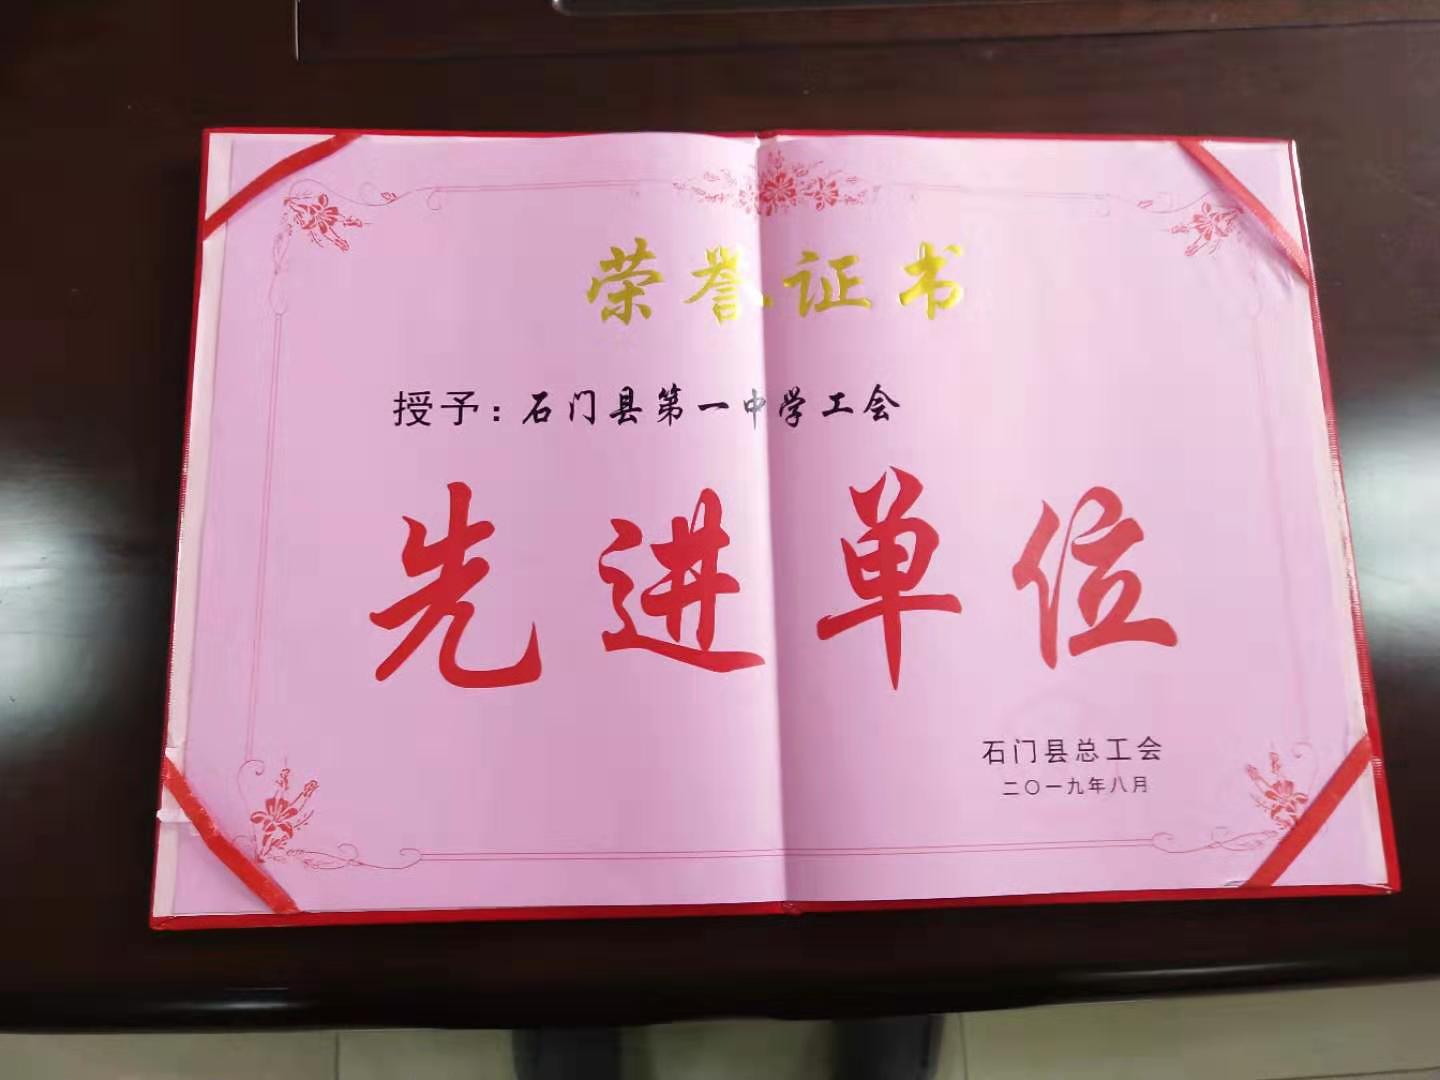 荣誉证书
授予：石门县第一中学工会
先进单位
石门县总工会
二〇一九年八月